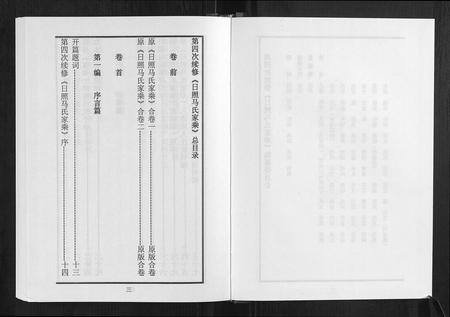 第四次续修《日照马氏家乘》总目录
卷前
原《日照马氏家乘》合卷一……原版合卷
原《日照马氏家乘》合卷二……原版合卷
卷首
第一编 序言篇
开篇题词……十三
第四次续修《日照马氏家乘》序……十四
三